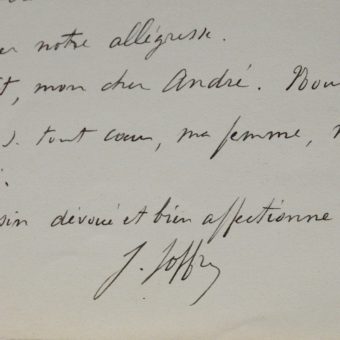 notre allégresse.
, mon cher André. Nou
tout cœur, ma femme,
sin dévoué et bien affectionné
J. Joffre